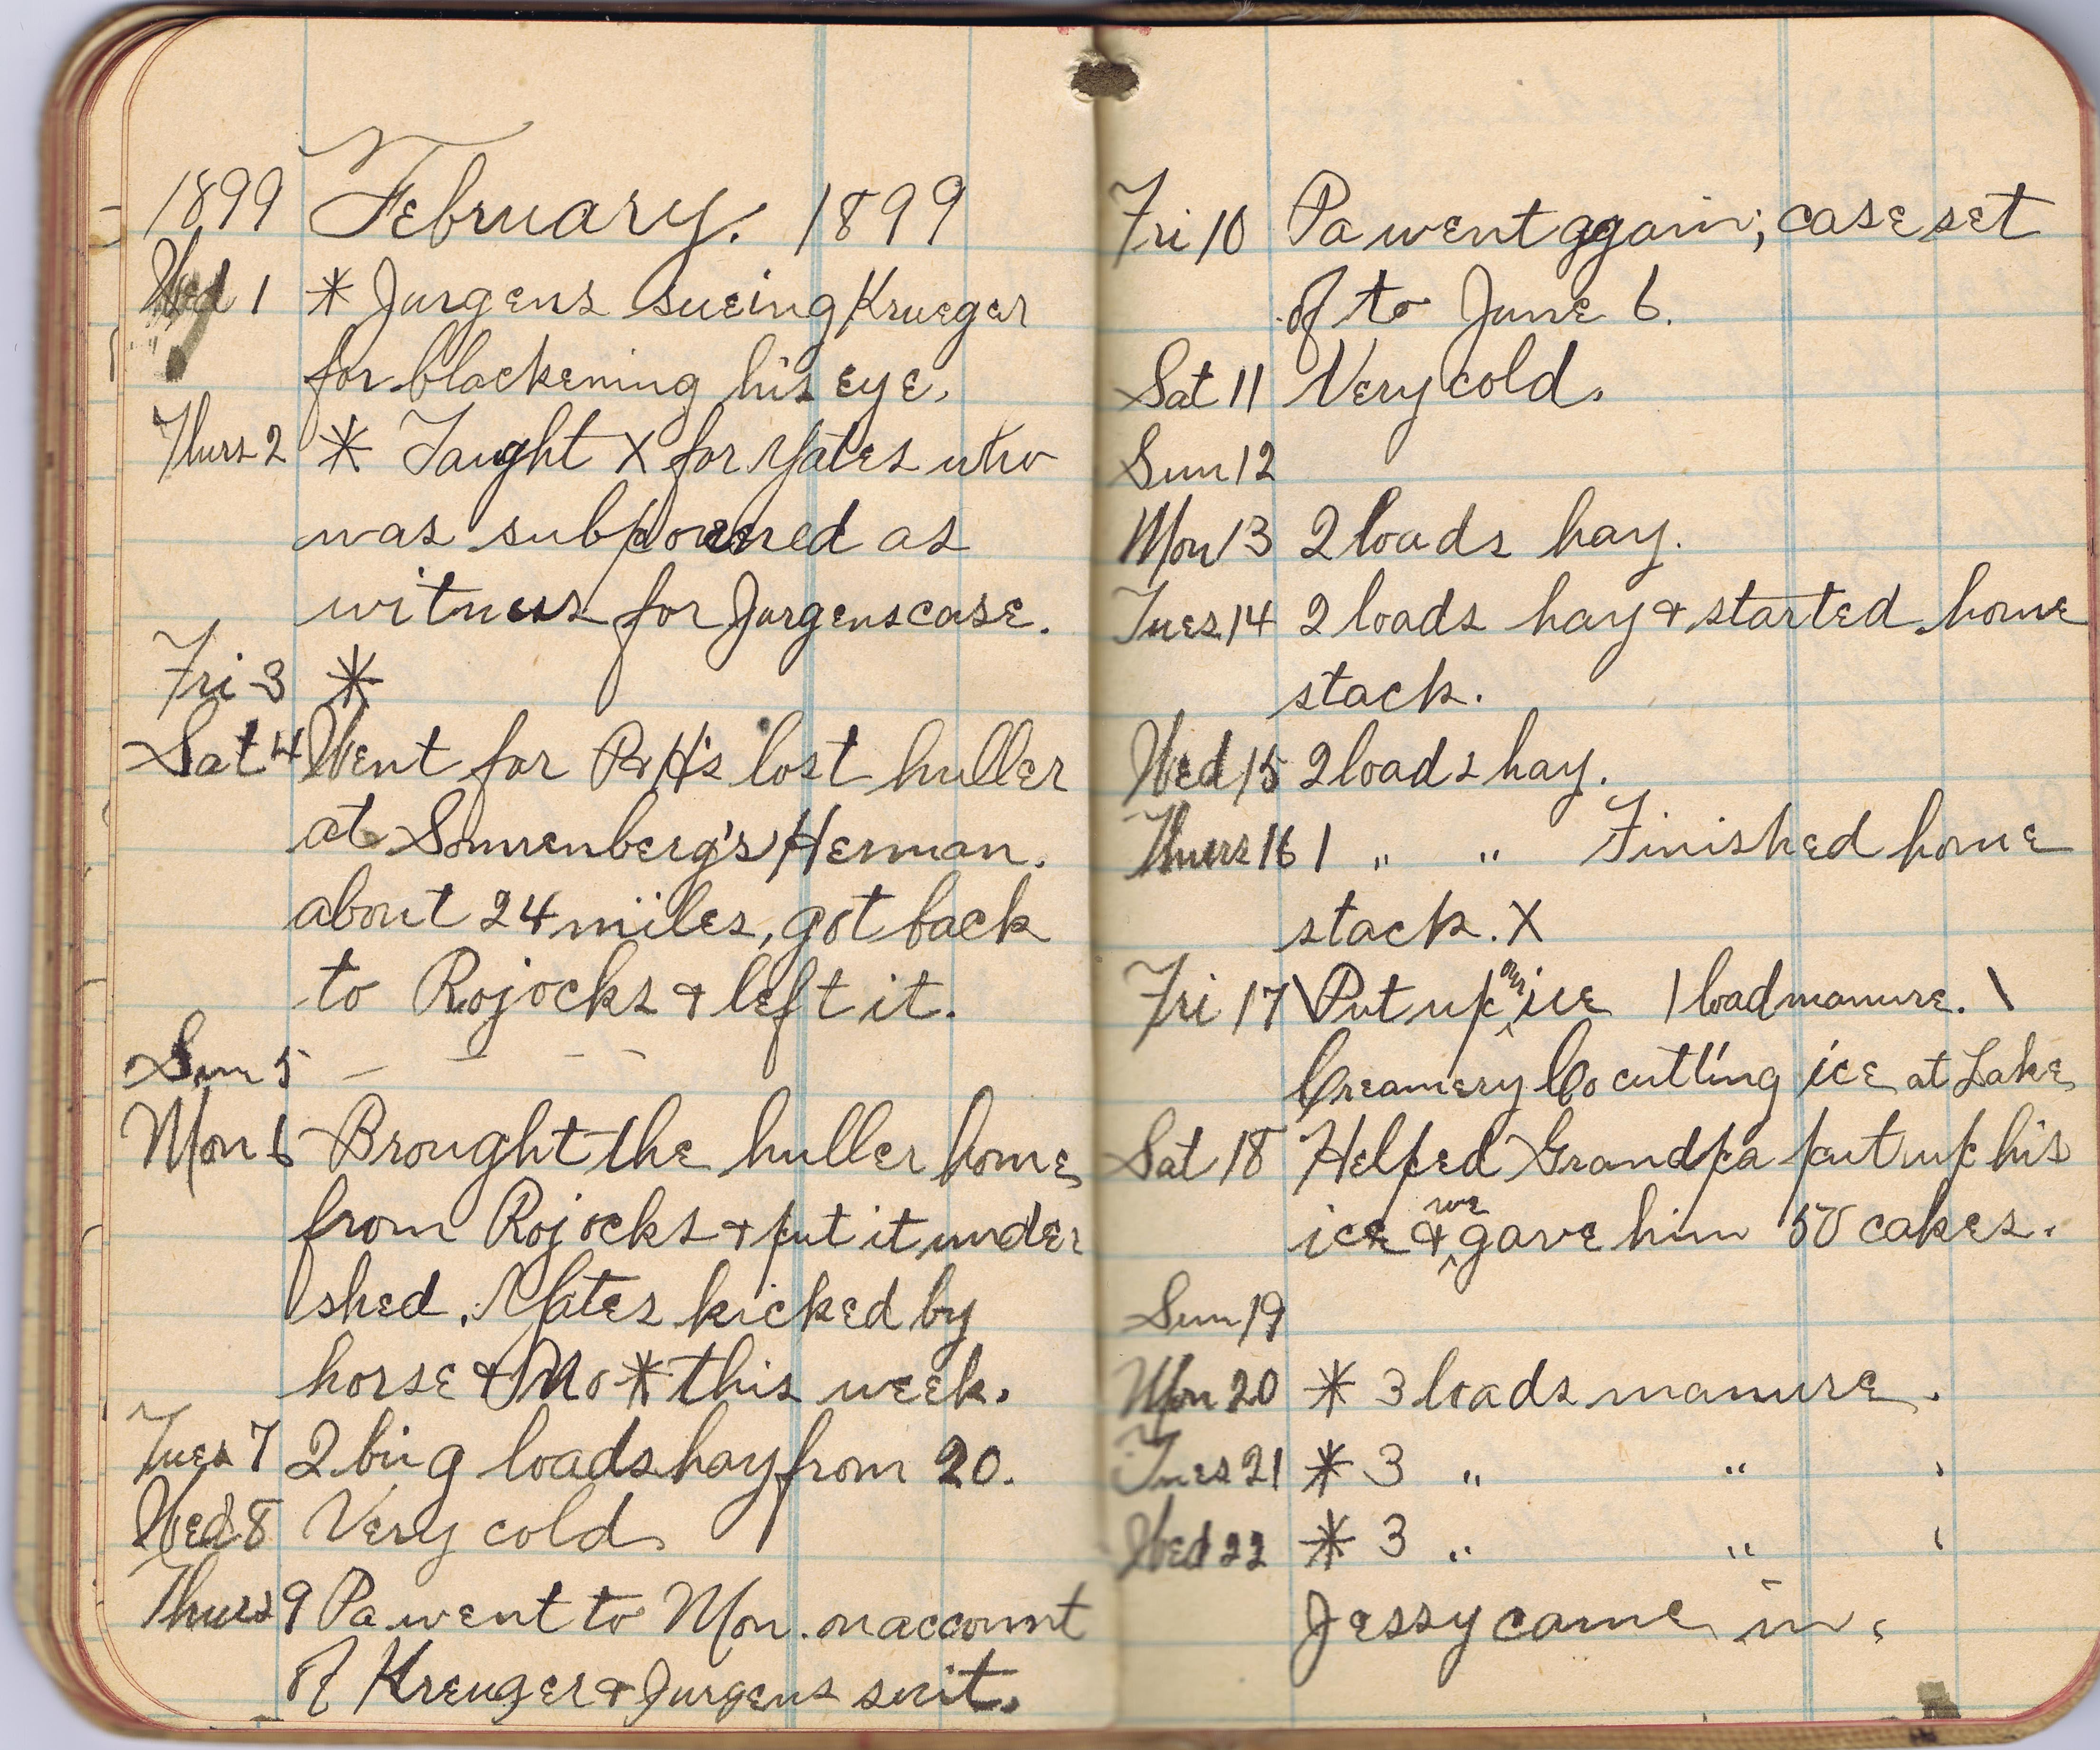 1899 February. 1899
Wed 1 * Jurgens sueing Krueger
for blackening his eye.
Thurs 2 * Taught X for Yates who
was subpoened as
witness for Jurgens case.
Fri 3 *
Sat 4 Went for P&H's lost huller
at Sonnenberg's Herman.
about 24 miles, got back
to Rojocks & left it.
Sun 5 — — — —
Mon 6 Brought the huller home
from Rojocks & put it under
shed. Yates kicked by
horse & No * this week.
Tues 7 2 big loads hay from 20.
Wed 8 Very cold
Thurs 9 Pa went to Mon. on account
of Kreuger & Jurgens suit.
Fri 10 Pa went again; case set
of to June 6.
Sat 11 Very cold.
Sun 12
Mon 13 2 loads hay.
Tues 14 2 loads hay & started home
stack.
Wed 15 2 loads hay.
Thurs 16 1 " " Finished home
stack. X
Fri 17 \ Put up our ice 1 load manure. \
Creamery Co cutting ice at Lake
Sat 18 Helped Grandpa put up his
ice & we gave him 50 cakes.
Sun 19
Mon 20 * 3 loads manure.
Tues 21 * 3 " " '
Wed 22 * 3 " " '
Jessy came in.